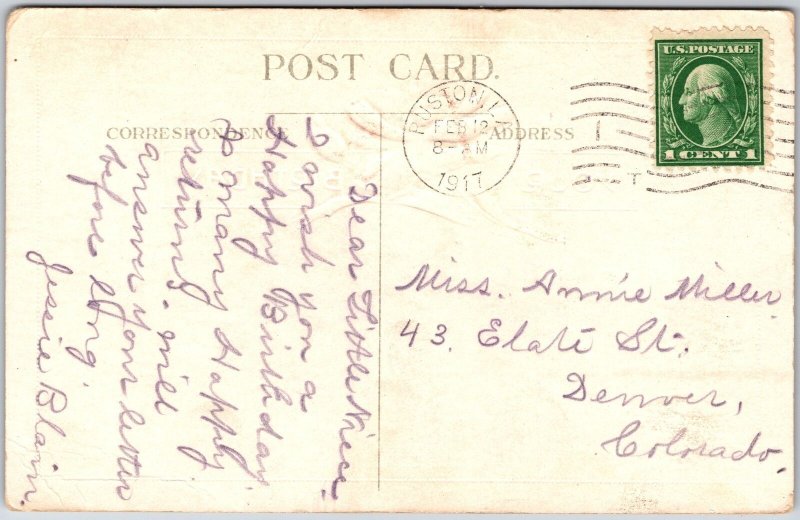 POST CARD.
CORRESPONDENCE
ADDRESS
RUSTON, LA
FEB 12
8- AM
1917
U.S. POSTAGE
1 CENT 1
Dear Little Niece.
I wish you a
Happy Birthday
& many Happy
returns. will
answer your letter
before long.
Jessie Blain.
Miss. Annie Miller
43. Elati St.
Denver,
Colorado.